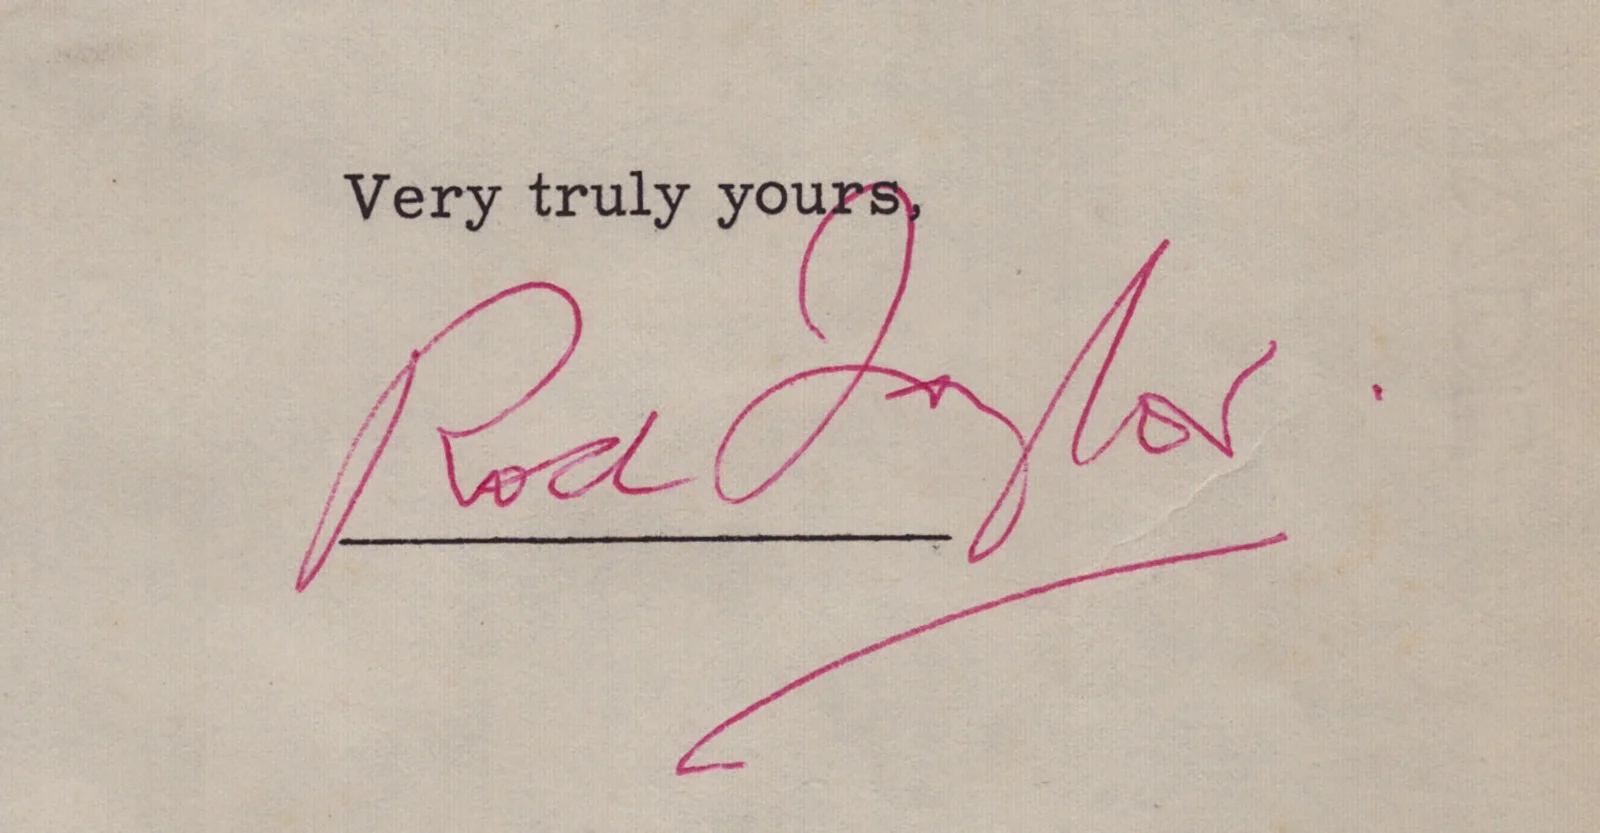 Very truly yours,
Rod Taylor